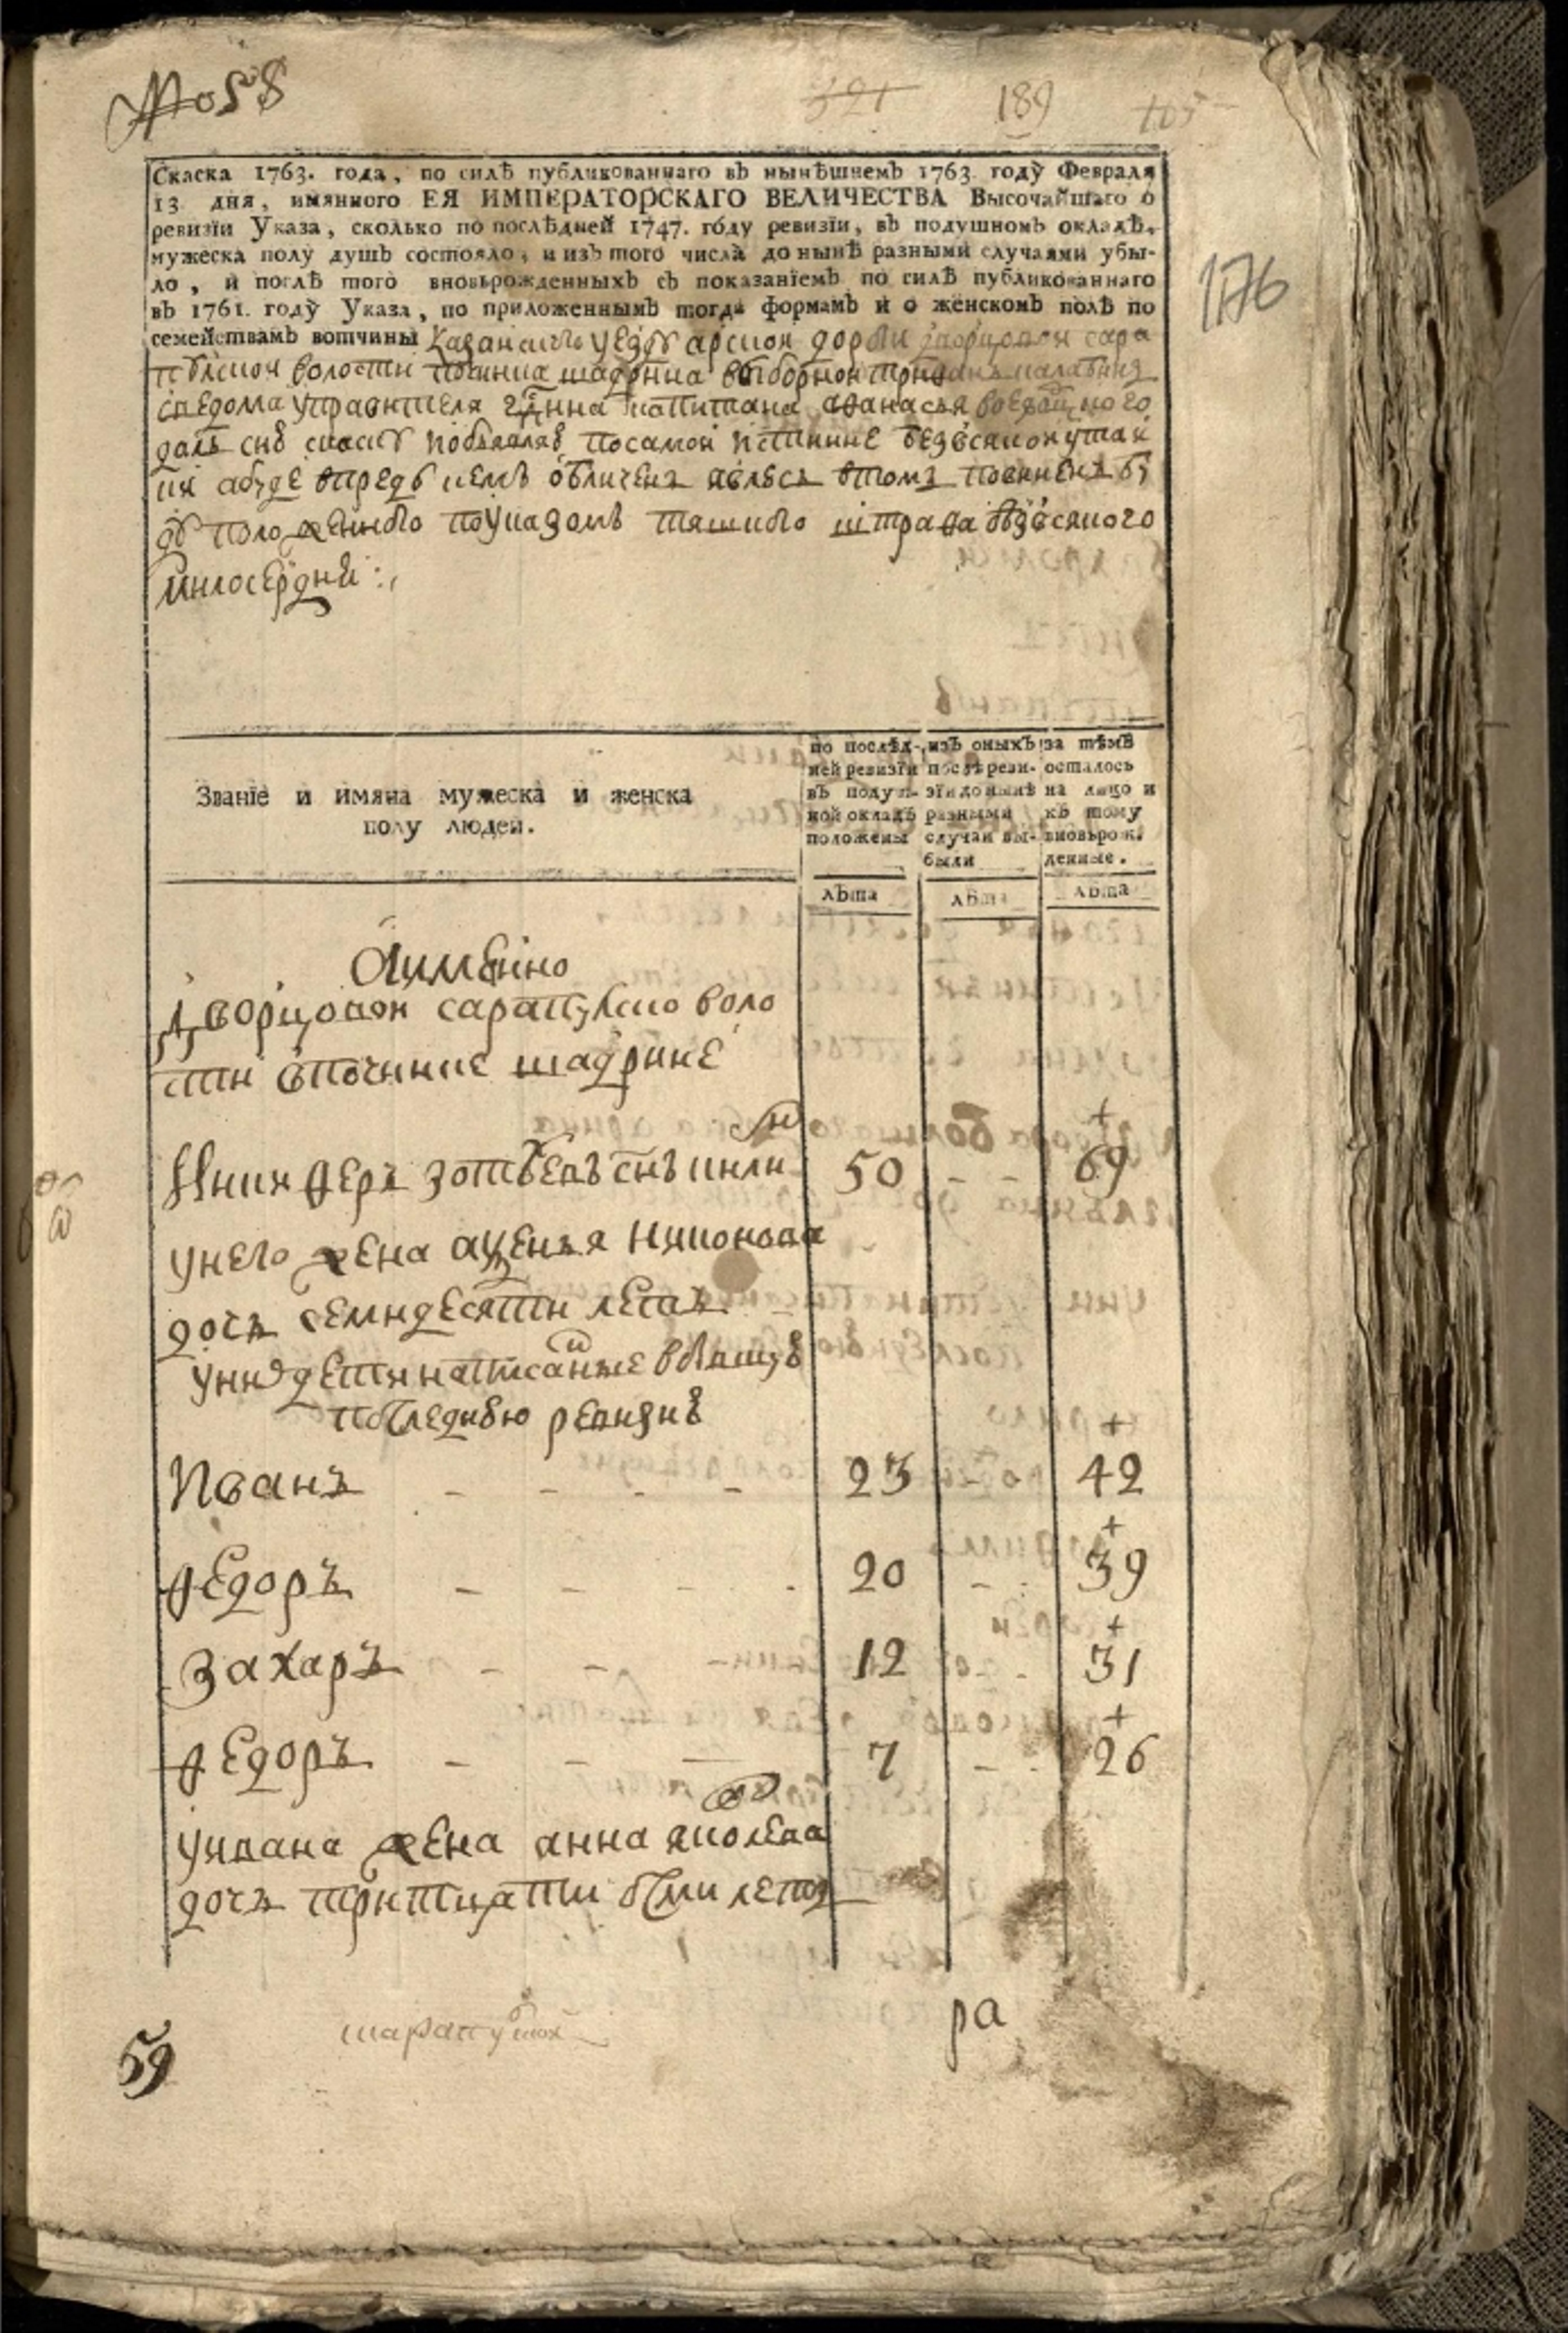 № 58
321 189
176
Скаска 1763. года, по силѣ публикованнаго въ нынѣшнемъ 1763 году Февраля
13 дня, имяннаго ЕЯ ИМПЕРАТОРСКАГО ВЕЛИЧЕСТВА Высочайшаго о
ревизїи Указа, сколько по послѣдней 1747. году ревизїи, въ подушномъ окладѣ,
мужеска полу душъ состояло, и изъ того числа до нынѣ разными случаями убы-
ло, и послѣ того вновьрожденныхъ съ показанїемъ по силѣ публикованнаго
въ 1761. году Указа, по приложеннымъ тогда формамъ и о женскомъ полѣ по
семействамъ вотчины казанского уезду арской дороги дворцовой сара
пулской волости починка шадрина выборной
сведома управителя капитана
далъ сию скаску по самой истинне безо всякой утай
ки а буде впредь кемъ обличенъ явлюсь втомъ повиненъ бу
ду положенного по указомъ тяшкого штрафа безо всякого
милосердия
Званїе и имяна мужеска и женска
полу людей.
по послѣд-
ней ревизїи
въ подуш-
ной окладъ
положены
изъ оныхъ
послѣ реви-
зїи до нынѣ
разными
случаи вы-
были
за тѣмъ
осталось
на лицо и
къ тому
вновьрож-
денные.
лѣта лѣта лѣта
Аимянно
Дворцовой сарапулско воло
сти впочинке шадрине
Никифоръ зотеевъ снъ 50 69
унего жена аксенья никонова
дочь семидесяти летъ
уних дети написанные вбывшую
последнюю ревизию
Иванъ 23 42
Федоръ 20 39
Захаръ 12 31
Федоръ 7 26
уивана жена анна яковлева
дочь тритцати осми летъ
ра
59